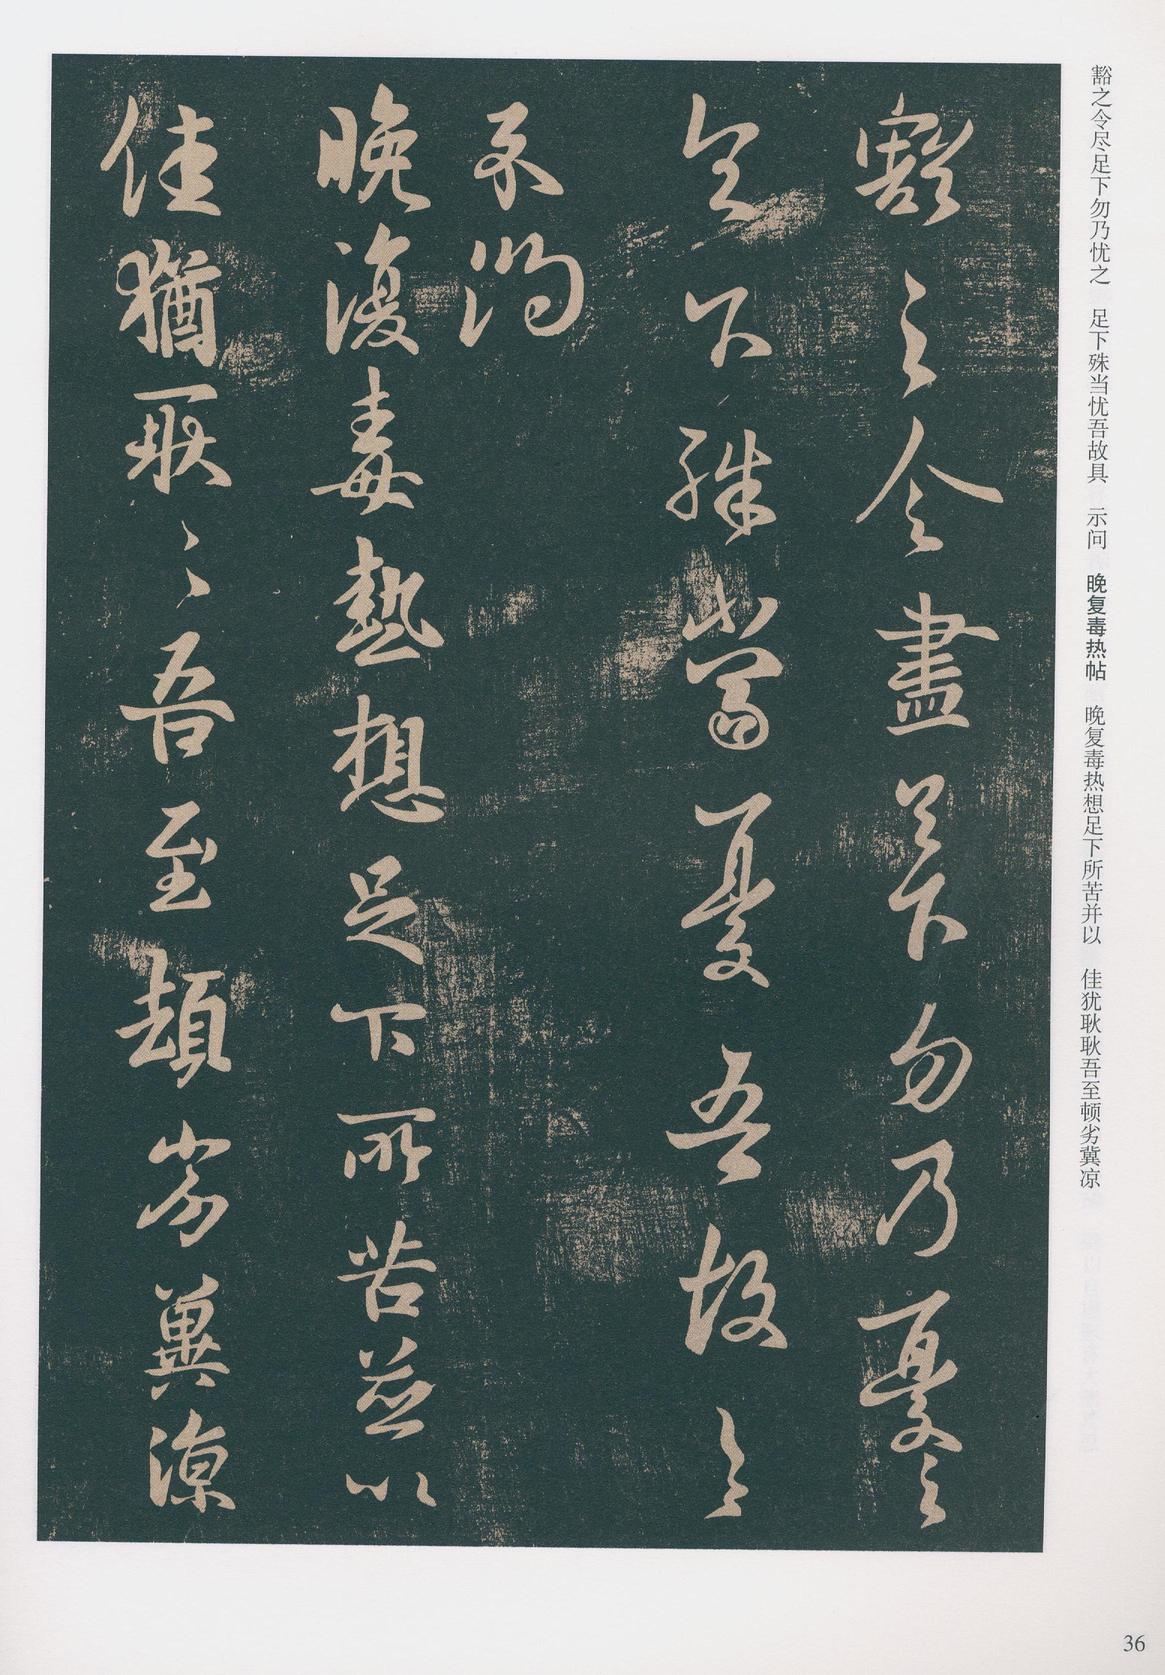 豁之令尽足下勿乃忧之　足下殊当忧吾故具　示问　晚复毒热帖　晚复毒热想足下所苦并以　佳犹耿耿吾至顿劣冀凉
豁之令盡足下勿乃憂之
足下殊當憂吾故具
示問
晚復毒熱想足下所苦並以
佳猶耿〻吾至頓劣冀涼
36